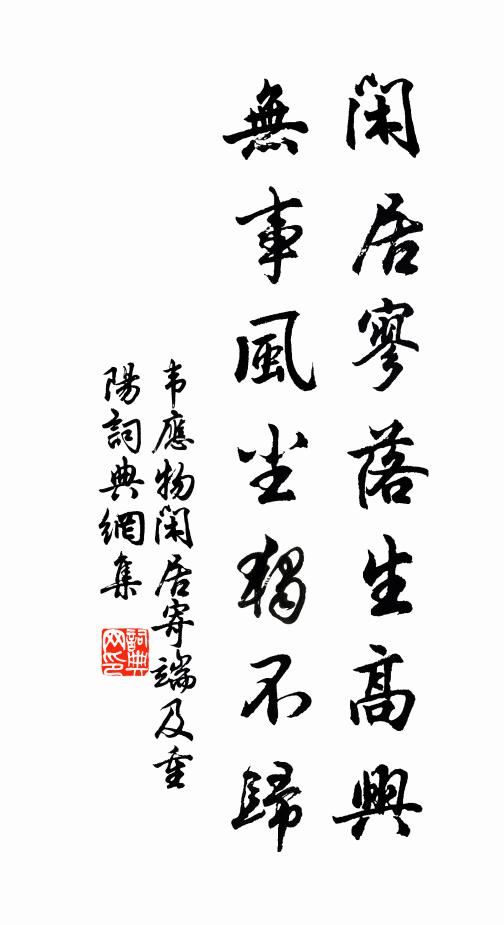 閑居寥落生高興
無事風塵獨不歸
韦應物閑居寄端及重
陽詞典網集
詞典
网印